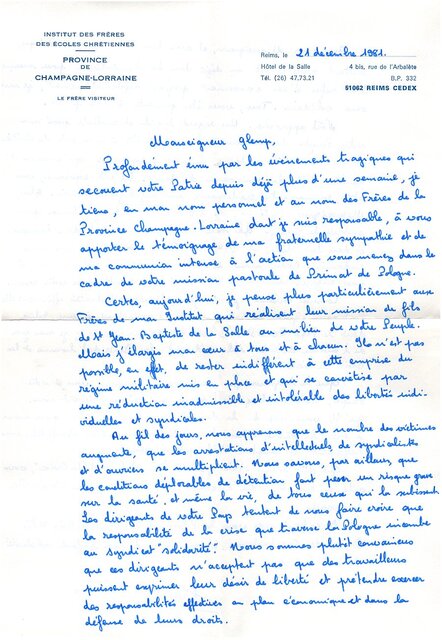 INSTITUT DES FRÈRES
DES ÉCOLES CHRÉTIENNES
PROVINCE
DE
CHAMPAGNE-LORRAINE
LE FRÈRE VISITEUR
Reims, le 21 décembre 1981.
Hôtel de la Salle 4 bis, rue de l'Arbalète
Tél. (26) 47.73.21 B.P. 332
51062 REIMS CEDEX
Monseigneur Glemp,
Profondément ému par les événements tragiques qui
secouent votre Patrie depuis déjà plus d'une semaine, je
tiens, en mon nom personnel et au nom des Frères de la
Province Champagne-Lorraine dont je suis responsable, à vous
apporter le témoignage de ma fraternelle sympathie et de
ma communion intense à l'action que vous menez dans le
cadre de votre mission pastorale de Primat de Pologne.
Certes, aujourd'hui, je pense plus particulièrement aux
Frères de mon Institut qui réalisent leur mission de fils
de St Jean-Baptiste de la Salle au milieu de votre Peuple.
Mais j'élargis mon cœur à tous et à chacun. Il n'est pas
possible, en effet, de rester indifférent à cette emprise du
régime militaire mis en place et qui se concrétise par
une réduction inadmissible et intolérable des libertés indi-
viduelles et syndicales.
Au fil des jours, nous apprenons que le nombre des victimes
augmente, que les arrestations d'intellectuels, de syndicalistes
et d'ouvriers se multiplient. Nous savons, par ailleurs, que
les conditions déplorables de détention font peser un risque grave
sur la santé, et même la vie, de tous ceux qui la subissent.
Les dirigeants de votre Pays tentent de nous faire croire que
la responsabilité de la crise que traverse la Pologne incombe
au syndicat "solidarité". Nous sommes plutôt convaincus
que ces dirigeants n'acceptent pas que des travailleurs
puissent exprimer leur désir de liberté et prétendre exercer
des responsabilités effectives au plan économique et dans la
défense de leurs droits.